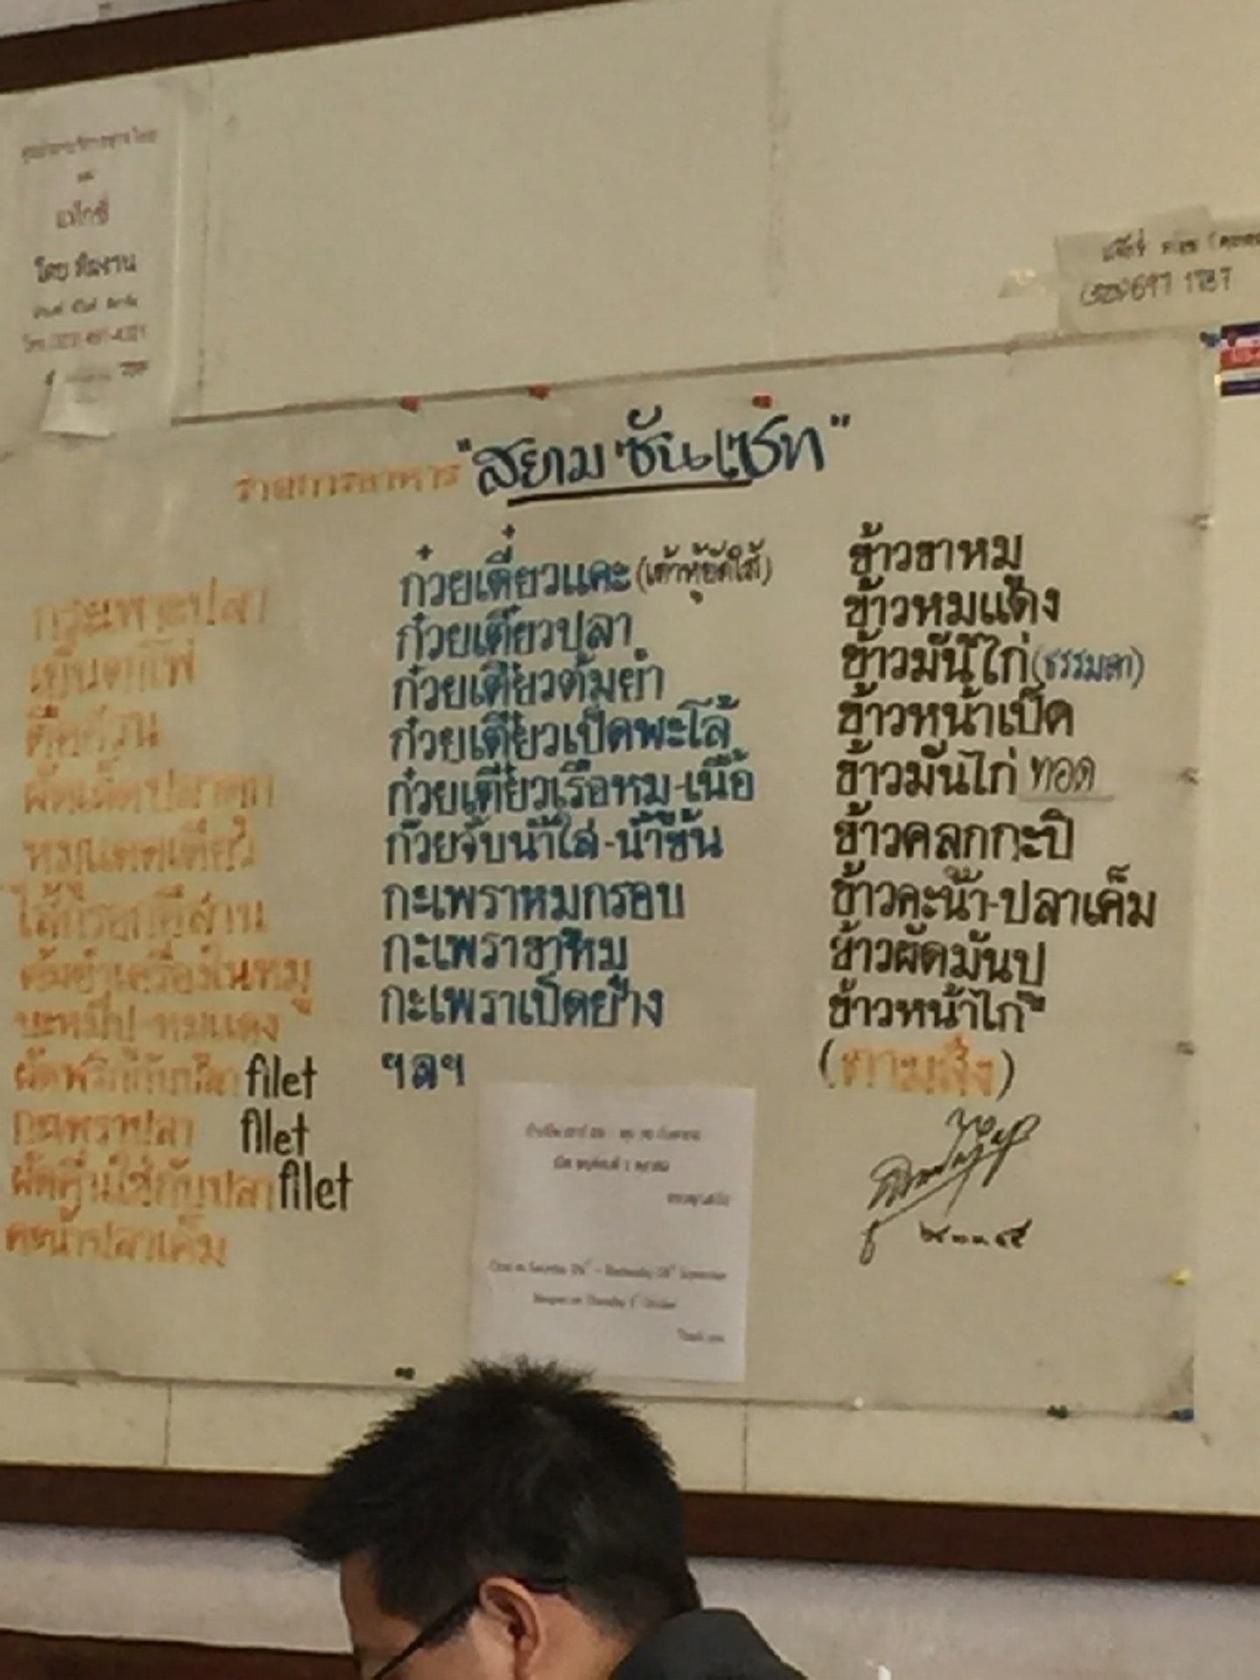 แท็กซี่
โดย ทีมงาน
(323) 697 1787
รายการอาหาร "สยามซันเซ็ท"
กระเพาะปลา
เย็นตาโฟ
ผัดเผ็ดปลาดุก
หมูแดดเดียว
ไส้กรอกอีสาน
ต้มยำเครื่องในหมู
บะหมี่ปู-หมูแดง
filet
กะเพราปลา filet
ผัดคื่นไช่กับปลา filet
คะน้าปลาเค็ม
ก๋วยเตี๋ยวแคะ (เต้าหู้ยัดไส้)
ก๋วยเตี๋ยวปลา
ก๋วยเตี๋ยวต้มยำ
ก๋วยเตี๋ยวเป็ดพะโล้
ก๋วยเตี๋ยวเรือหมู-เนื้อ
ก๋วยจั๊บน้ำใส-น้ำข้น
กะเพราหมูกรอบ
กะเพราขาหมู
กะเพราเป็ดย่าง
ฯลฯ
ข้าวขาหมู
ข้าวหมูแดง
ข้าวมันไก่ (ธรรมดา)
ข้าวหน้าเป็ด
ข้าวมันไก่ ทอด
ข้าวคลุกกะปิ
ข้าวคะน้า-ปลาเค็ม
ข้าวผัดมันปู
ข้าวหน้าไก่
(ตามสั่ง)
Close on Saturday 26 - Wednesday 30 September
Reopen on Thursday 1 October
Thank you